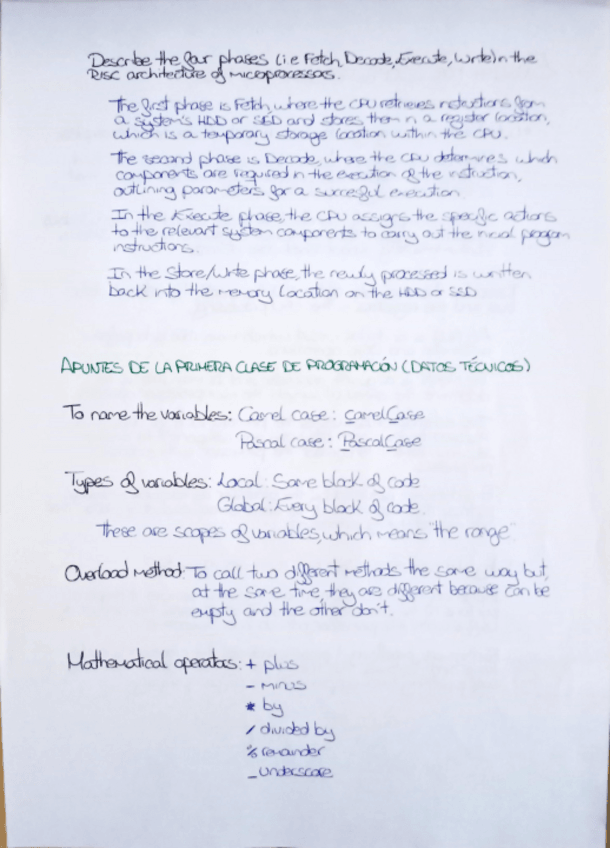 Describe the four phases (i.e Fetch, Decode, Execute, Write) in the
RISC architecture of microprocessors.
The first phase is Fetch, where the CPU retrieves instructions from
a system's HDD or SSD and stores them in a register location,
which is a temporary storage location within the CPU.
The second phase is Decode, where the CPU determines which
components are required in the execution of the instruction,
outlining parameters for a succesful execution.
In the Execute phase, the CPU assigns the specific actions
to the relevant system components to carry out the program
instructions.
In the Store/Write phase, the newly processed is written
back into the memory location on the HDD or SSD
APUNTES DE LA PRIMERA CLASE DE PROGRAMACIÓN (DATOS TÉCNICOS)
To name the variables: Camel case: camelCase
Pascal case: PascalCase
Types of variables: Local: Same block of code
Global: Every block of code.
These are scopes of variables, which means "the range"
Overload method: To call two different methods the same way but,
at the same time, they are different because can be
empty and the other don't.
Mathematical operators: + plus
- minus
* by
/ divided by
% remainder
_ underscore